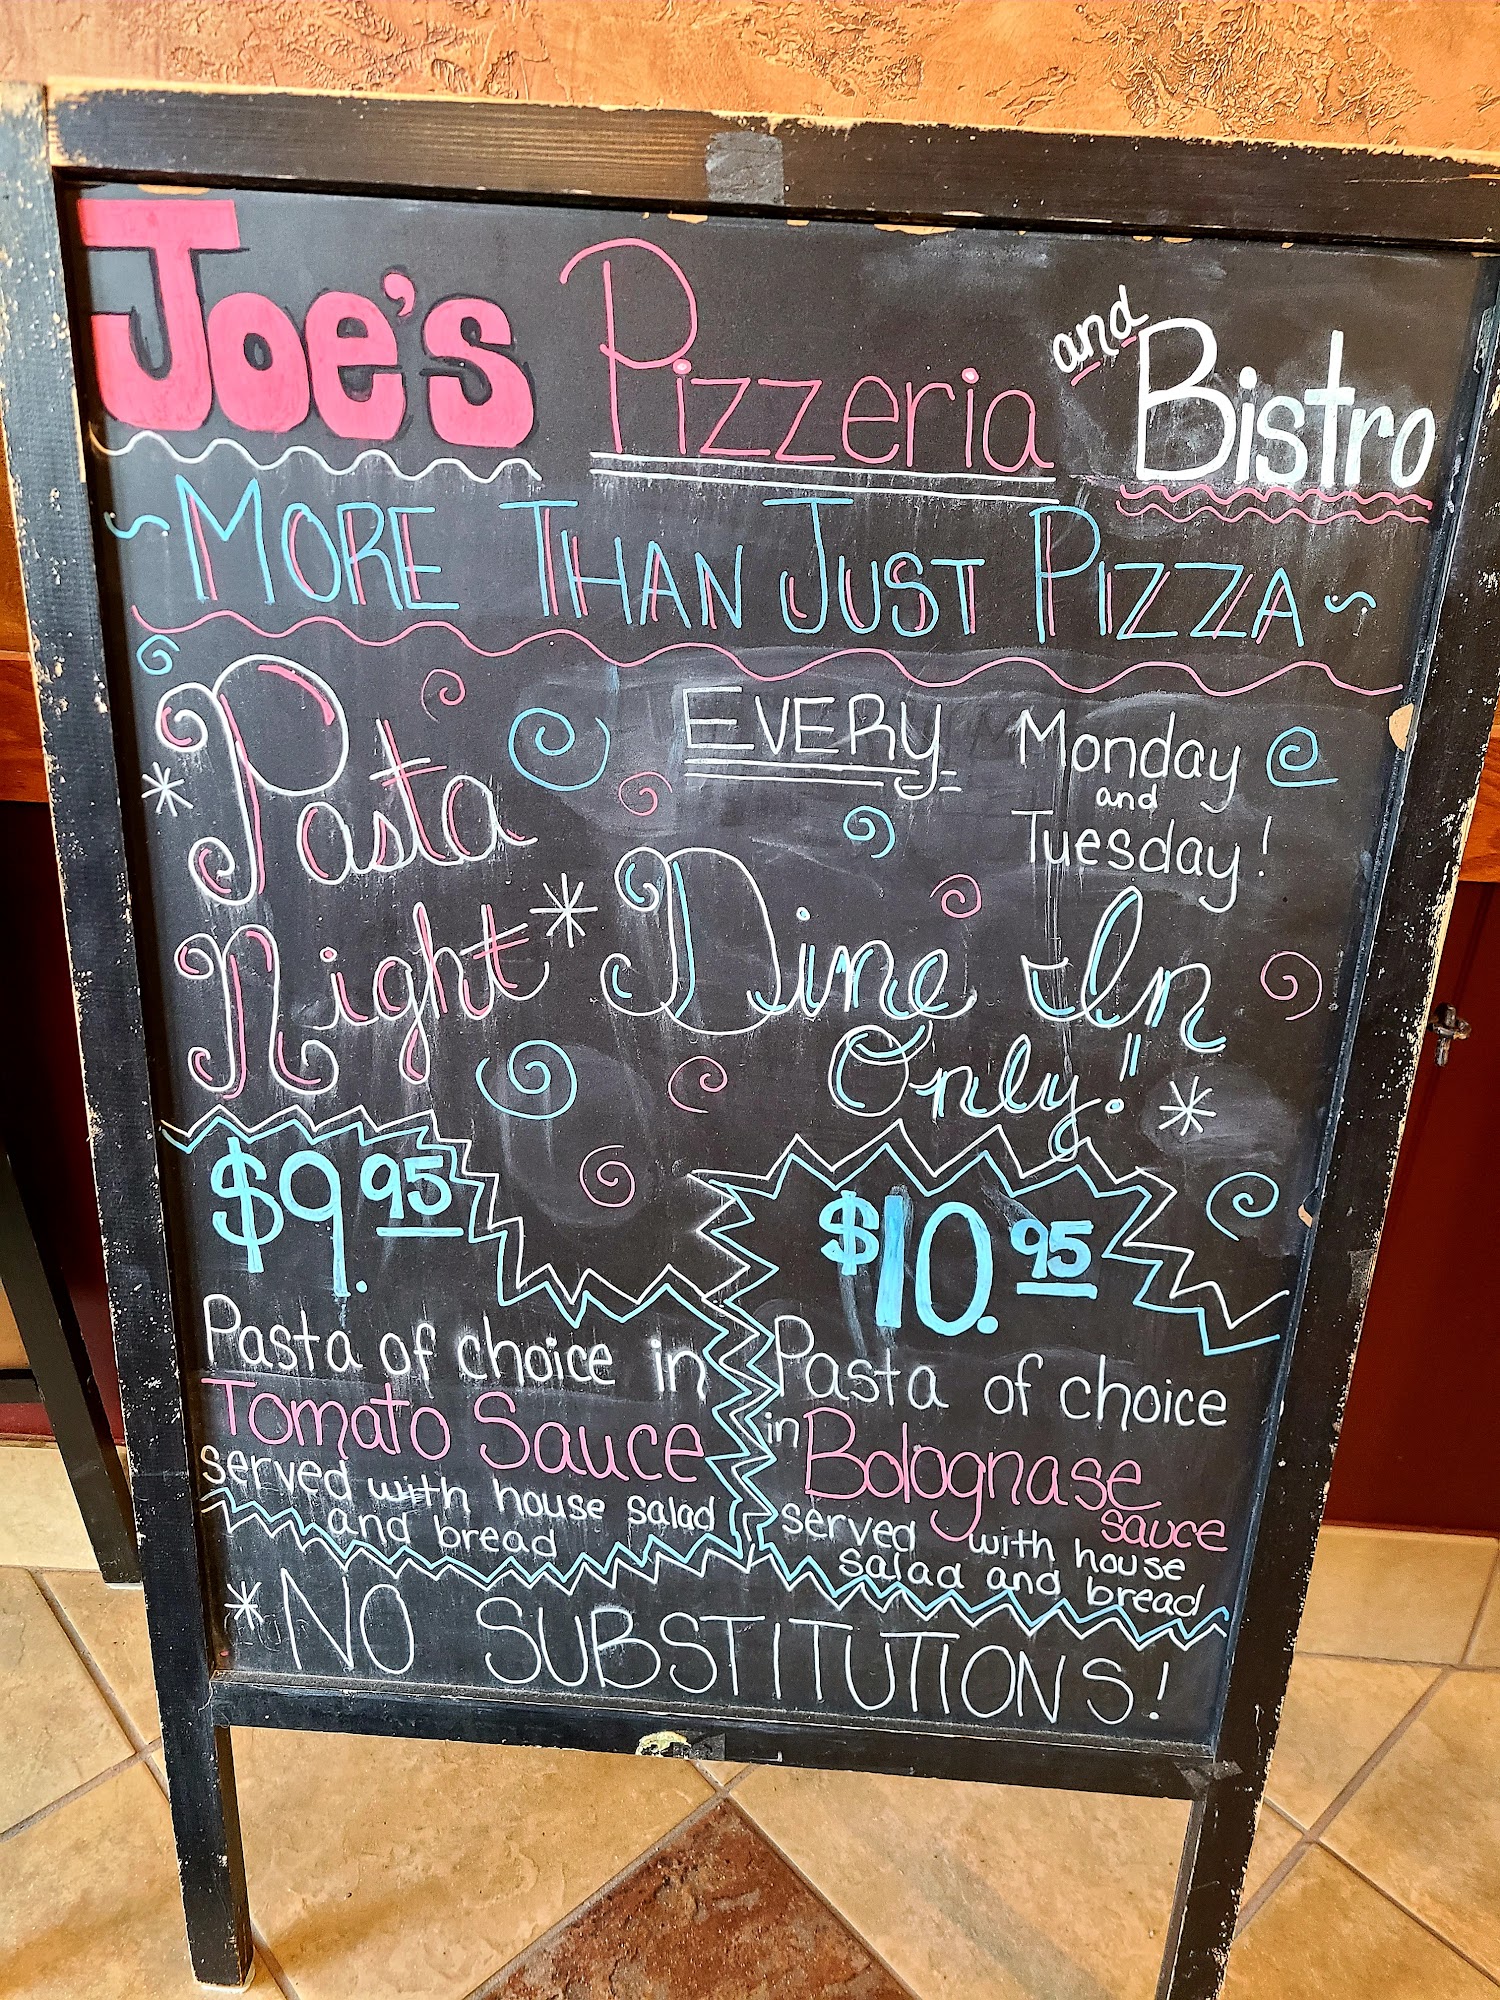 Joe's Pizzeria and Bistro
~MORE THAN JUST PIZZA~
*Pasta
Night*
EVERY Monday
and
Tuesday!
Dine In
Only!*
$9.95
Pasta of choice in
Tomato Sauce
served with house salad
and bread
$10.95
Pasta of choice
in Bolognase
sauce
served with house
salad and bread
*NO SUBSTITUTIONS!